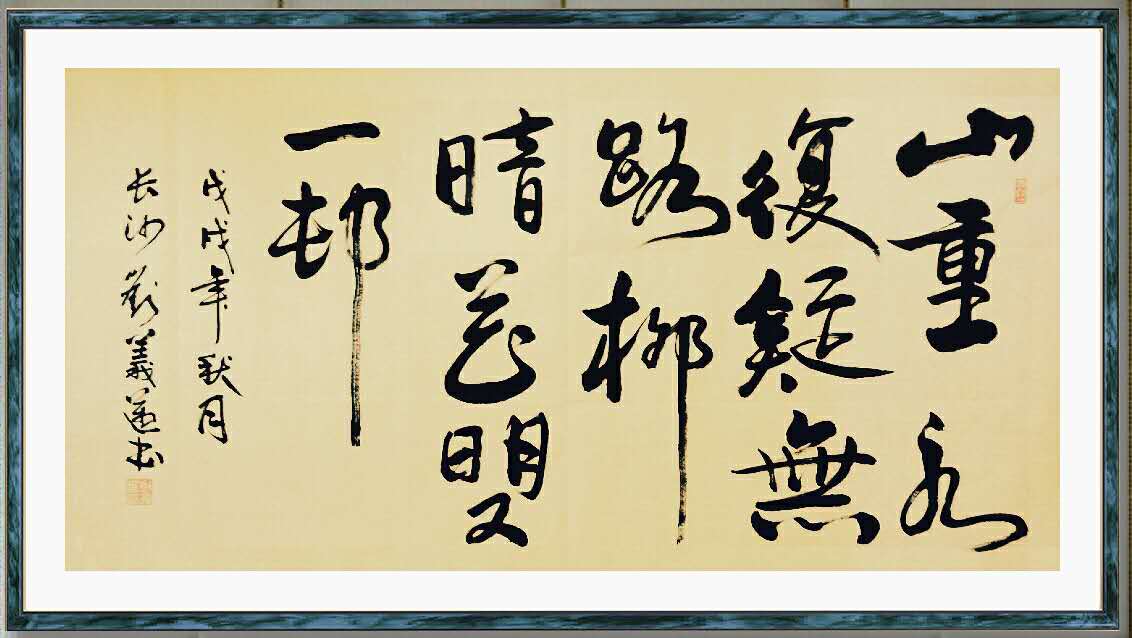 山重水
復疑無
路柳
暗花明又
一邨
戊戌年秋月
长沙劉義书